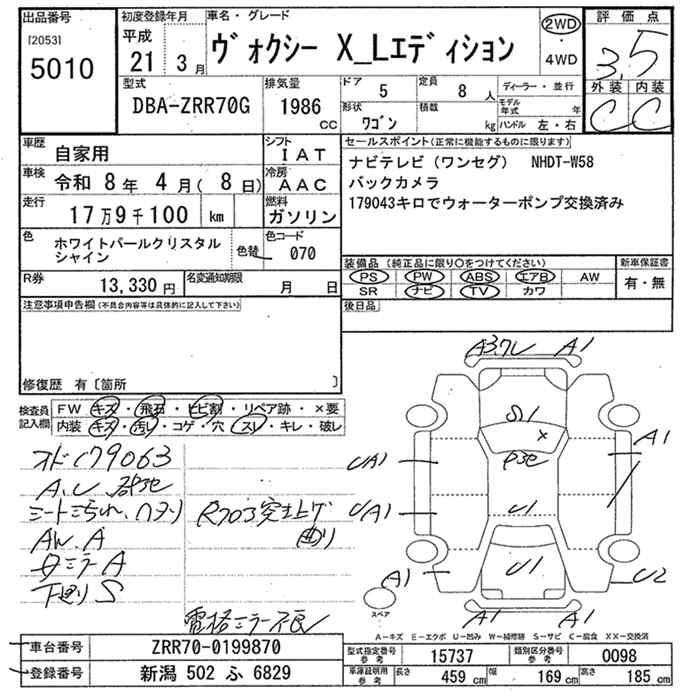 出品番号 [2053] 5010
初度登録年月 平成 21年 3月
車名・グレード ヴォクシー X_Lエディション
2WD・4WD
評価点 3.5
外装 C 内装 C
型式 DBA-ZRR70G
排気量 1986 CC
ドア 5
定員 8人
ディーラー・並行
形状 ワゴン
積載 kg
モデル年式 年
ハンドル 左・右
車歴 自家用
シフト IAT
車検 令和 8年 4月(8日)
冷房 AAC
走行 17万9千100 km
燃料 ガソリン
色 ホワイトパールクリスタル
シャイン
色替
色コード 070
R券 13,330円
名変通知期限 月 日
セールスポイント(正常に機能するものに限ります)
ナビテレビ(ワンセグ) NHDT-W58
バックカメラ
179043キロでウォーターポンプ交換済み
装備品(純正品に限り○をつけてください)
PS PW ABS エアB AW
SR ナビ TV カワ
新車保証書 有・無
後日品
注意事項申告欄(不具合内容等は具体的に記入して下さい)
修復歴 有〔箇所 〕
検査員記入欄
FW キズ・飛石・ヒビ割・リペア跡・×要
内装 キズ・汚レ・コゲ・穴・スレ・キレ・破レ
A.U
AW.A
A
下廻り S
電格ミラー不良
A1
S1
U1
UA1
A1
U/A1
U1
A1
U1
U2
A1
A1
スペア
A―キズ E―エクボ U―凹み W―補修跡 S―サビ C―腐食 XX―交換済
車台番号 ZRR70-0199870
登録番号 新潟 502 ふ 6829
型式指定番号 参考 15737
類別区分番号 参考 0098
車庫証明用 参考 長さ 459 cm 幅 169 cm 高さ 185 cm